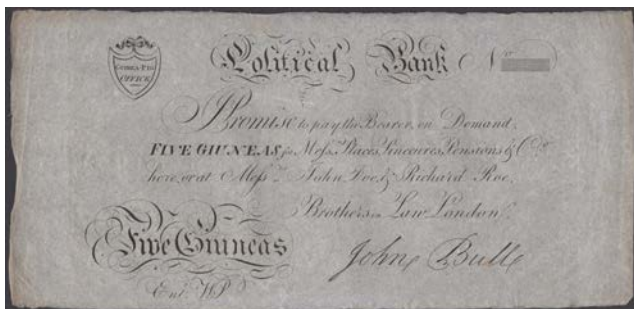 GUINEA-PIG
OFFICE
Political Bank No
I Promise to pay the Bearer, on Demand,
FIVE GIUNEAS for Messrs. Places, Sinecures, Pensions & Co.
here, or at Messrs. John Doe, & Richard Roe,
Brothers in Law London.
Five Guineas
John Bull